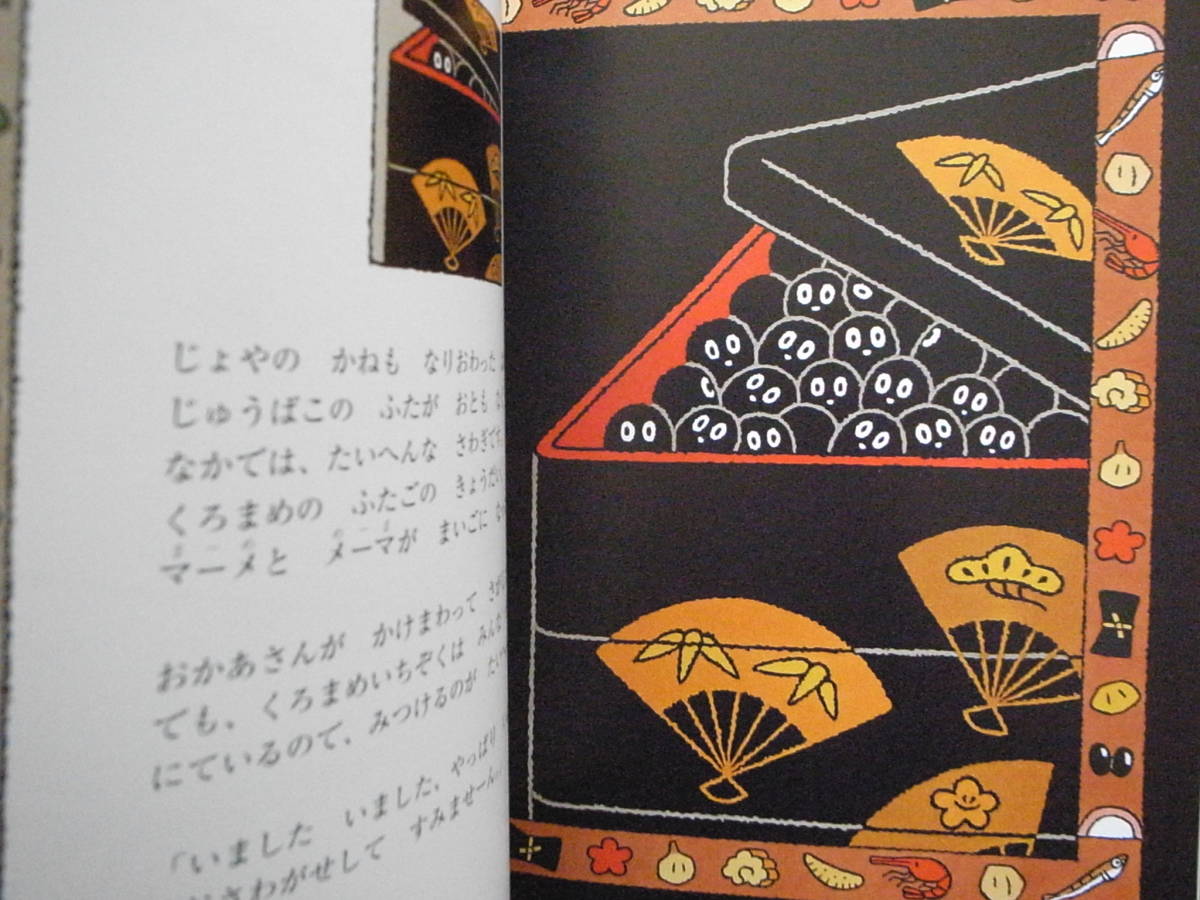 じょやの かねも なりおわった
じゅうばこの ふたが おとも
なかでは、たいへんな さわぎです
くろまめの ふたごの きょうだい
マーメと メーマが まいごに
おかあさんが かけまわって さが
ても、くろまめいちぞくは みんな
にているので、みつけるのが たい
「いました いました、やっぱり
さわがせして すみませーん」